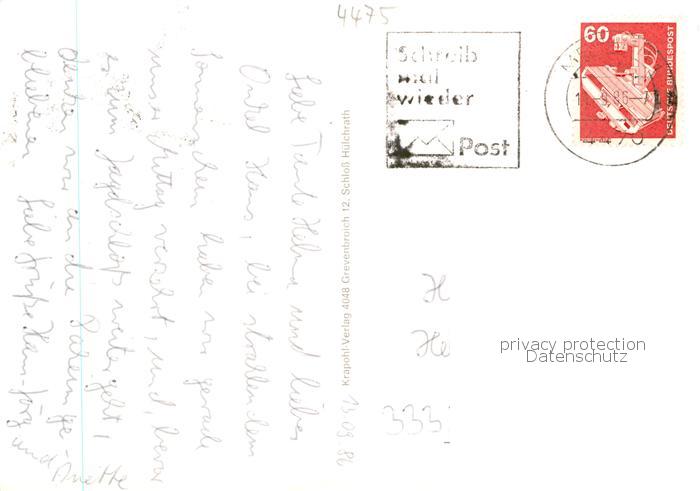 4475
Schreib
mal
wieder
Post
60
DEUTSCHE BUNDESPOST
4470
Liebe Tante Helma und lieber
Onkel Hans, bei strahlendem
Sonnenschein haben wir gerade
unser Mittag verzehrt, und, bevor
es zum Jagdschloß weiter geht,
denken wir an die
lieben Liebe Grüße Hans-Jörg und
Anette
Krapohl-Verlag 4048 Grevenbroich 12, Schloß Hülchrath
13.09.86
H
He
333
privacy protection
Datenschutz